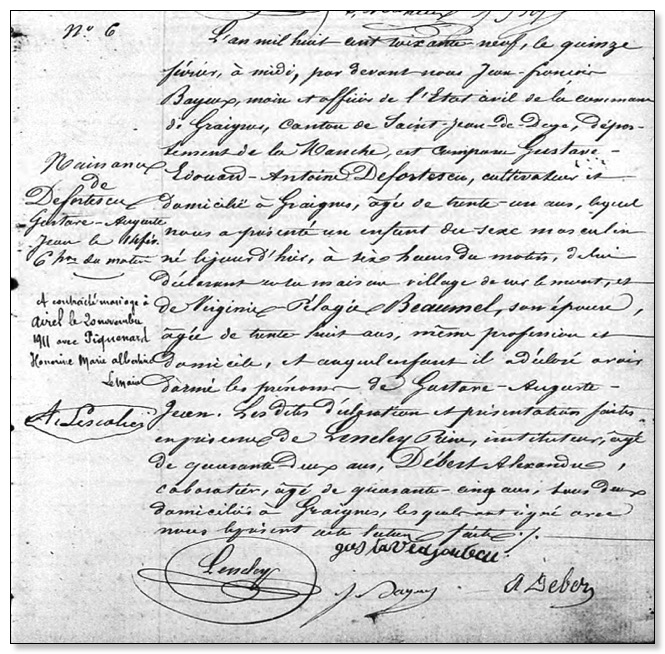 N° 6
L'an mil huit cent soixante neuf, le quinze
février, à midi, par devant nous Jean-françois
Bayeux, maire et officier de l'Etat civil de la commune
de Graignes, canton de Saint-Jean-de-Daye, dépar-
tement de la Manche, est comparu Gustave-
Edouard-Antoine Defortescu, cultivateur et
domicilié à Graignes, âgé de trente-un ans, lequel
nous a présenté un enfant du sexe masculin
né le jour d'hier, à six heures du matin, de lui
déclarant en sa maison village de sur le mont, et
de Virginie Pélagie Beaumel, son épouse,
agée de trente huit ans, même profession et
domicile, et auquel enfant il a déclaré avoir
donné les prénoms de Gustave-Auguste-
Jean. Les dites déclaration et présentation faites
en présence de Lenesley Pierre, instituteur, âgé
de quarante deux ans, Débert Alexandre,
cabaretier, âgé de quarante-cinq ans, tous deux
domiciliés à Graignes, lesquels ont signé avec
nous le présent acte lecture faite ./.
Naissance
de
Defortescu
Gustave-Auguste
Jean le 14 fév.
6 hres du matin
A contracté mariage à
Airel le 20 novembre
1911 avec Piquenard
Honorine Marie Albertine
Le Maire
A. Lescalier
Lenesley
J Bayeux
A Deber